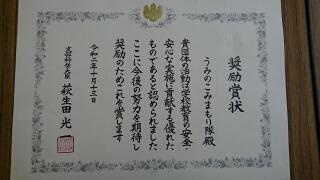 奨励賞状
うみのこみまもり隊殿
貴団体の活動は学校教育の安全・
安心な実施に貢献する優れた
ものであると認められました
ここに今後の努力を期待し
奨励のためこれを賞します
令和二年十月十三日
文部科学大臣 萩生田光一